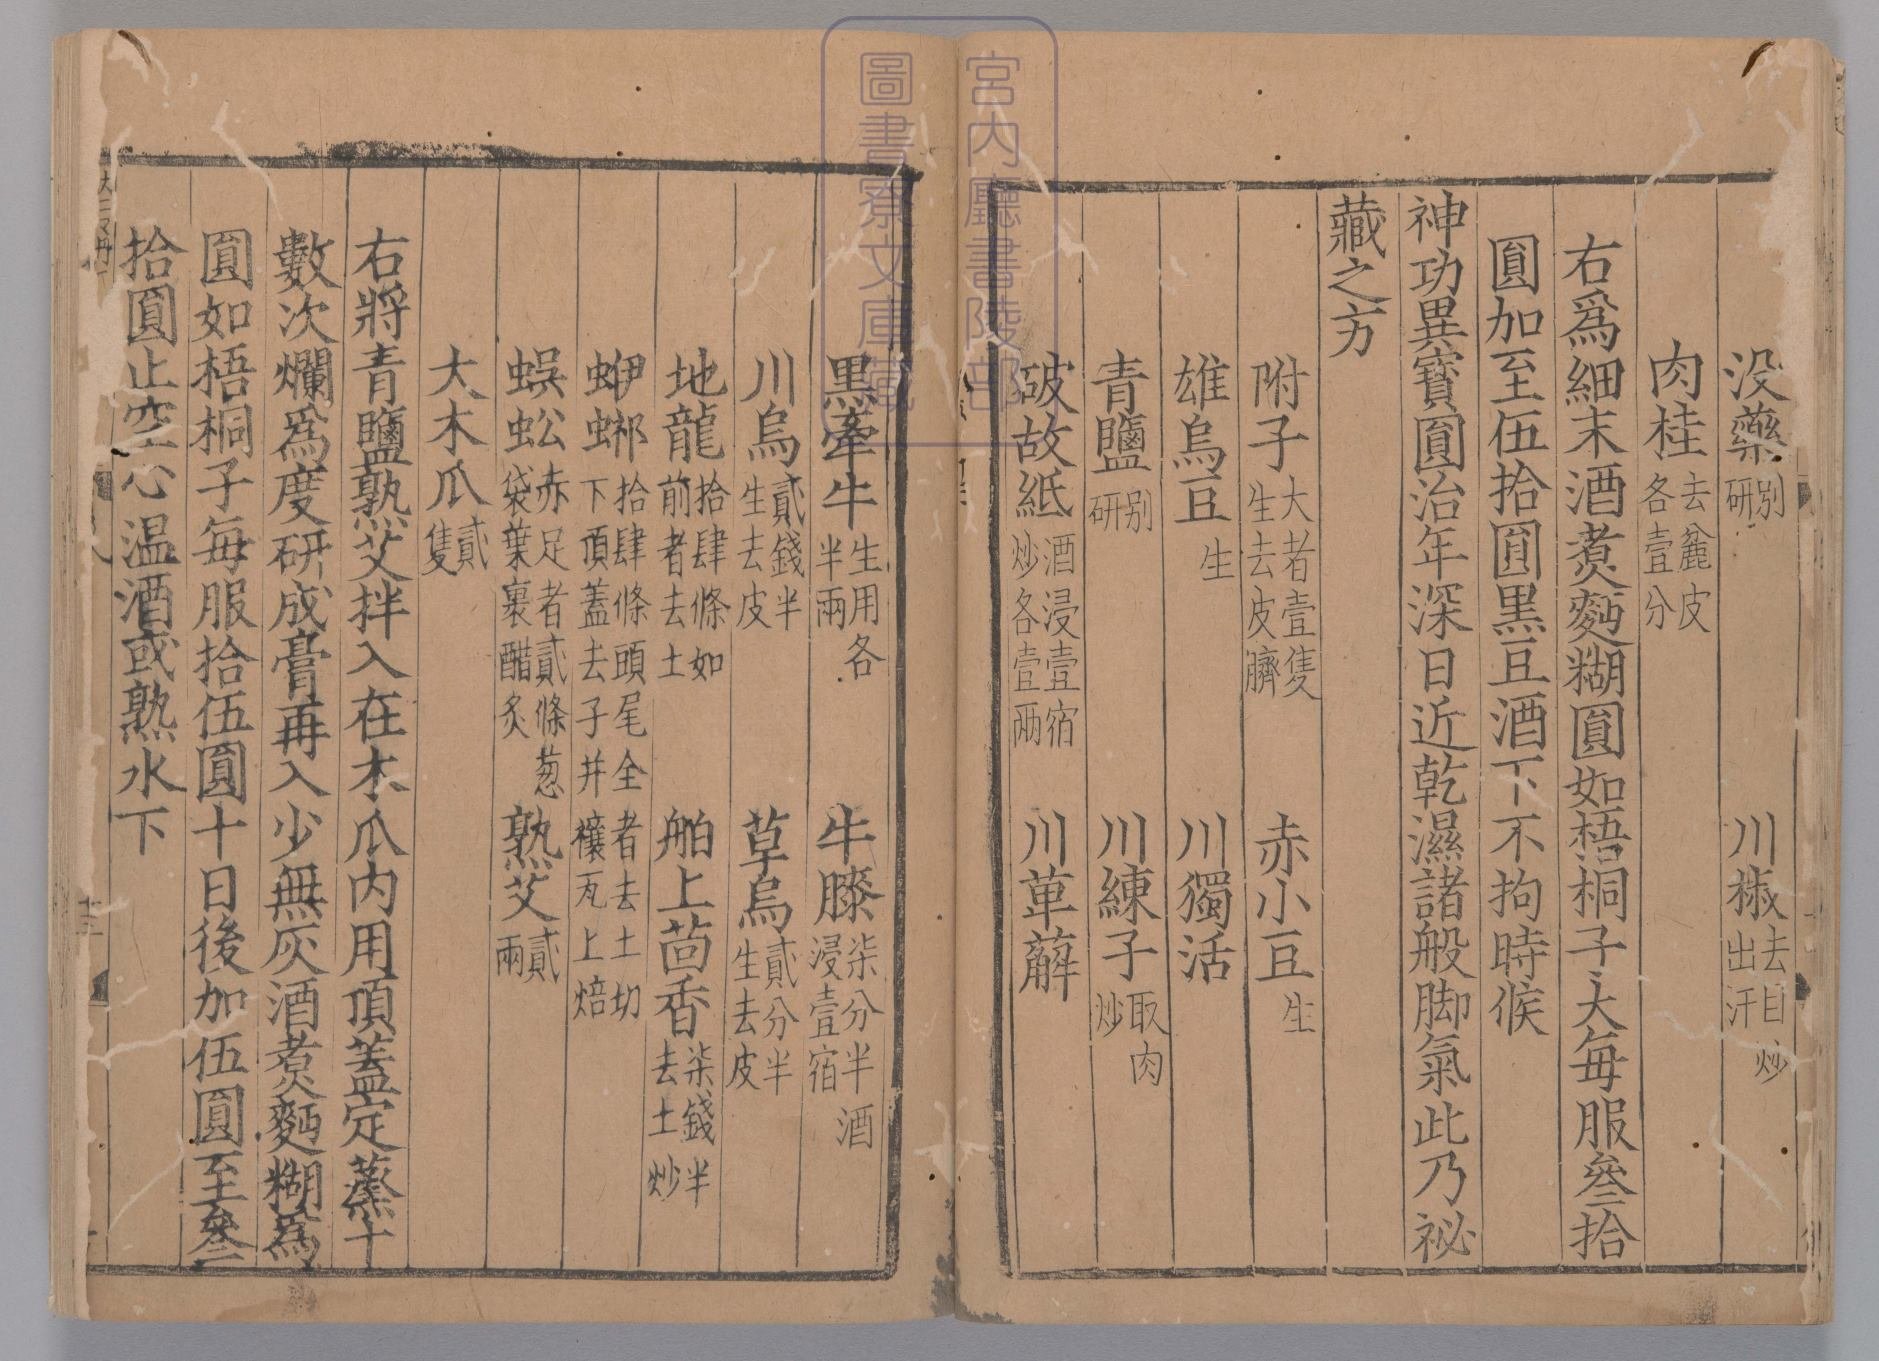 没藥別研 川椒去目炒出汗
肉桂去麄皮各壹分
右爲細末酒煮麪糊圓如梧桐子大每服叄拾
圓加至伍拾圓黑豆酒下不拘時候
神功異寶圓治年深日近乾濕諸般脚氣此乃祕
藏之方
附子大者壹隻生去皮臍 赤小豆生
雄烏豆生 川獨活
青鹽別研 川練子取肉炒
破故紙酒浸壹宿炒各壹兩 川萆薢
黑牽牛生用各半兩 牛膝柒分半酒浸壹宿
川烏貳錢半生去皮 草烏貳分半生去皮
地龍拾肆條如前者去土 舶上茴香柒錢半去土炒
蛜螂拾肆條頭尾全者去土切下頂蓋去子并穰瓦上焙
蜈蚣赤足者貳條葱袋葉裹醋炙 熟艾貳兩
大木瓜貳隻
右將青鹽熟艾拌入在木瓜内用頂蓋定蒸十
數次爛爲度研成膏再入少無灰酒煮麪糊爲
圓如梧桐子每服拾伍圓十日後加伍圓至叄
拾圓止空心温酒或熟水下
宮内廳書陵部
圖書寮文庫藏